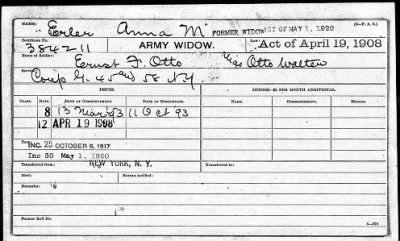 NAME: Erler Anna M FORMER WIDOW ACT OF MAY 1, 1920 (3-P. A. G.)
Certificate No. 384211 ARMY WIDOW. Act of April 19, 1908
Name of Soldier: Ernst F. Otto alias Otto Walter
Service: Comp G. 45 and 58 N.Y.
ISSUES. MINORS—$2 PER MONTH ADDITIONAL.
CLASS. RATE. DATE OF COMMENCEMENT. DATE OF CERTIFICATE. DATE OF COMMENCEMENT.
8 13 Mar 93 11 Oct '93
12 APR 19 1908
INC. 25 OCTOBER 6, 1917
Inc 30 May 1, 1920
Transferred from NEW YORK, N. Y. Transferred to
Remarks:
Former Roll No.